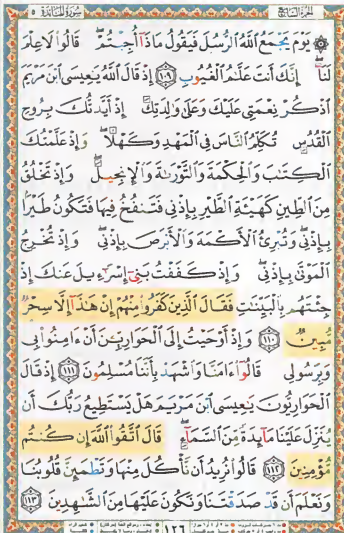 الجزء السابع سورة المائدة ٥
۞ يَوْمَ يَجْمَعُ اللَّهُ الرُّسُلَ فَيَقُولُ مَاذَا أُجِبْتُمْ ۖ قَالُوا لَا عِلْمَ
لَنَا ۖ إِنَّكَ أَنتَ عَلَّامُ الْغُيُوبِ ﴿١٠٩﴾ إِذْ قَالَ اللَّهُ يَعِيسَى ابْنَ مَرْيَمَ
اذْكُرْ نِعْمَتِي عَلَيْكَ وَعَلَىٰ وَالِدَتِكَ إِذْ أَيَّدتُّكَ بِرُوحِ
الْقُدُسِ تُكَلِّمُ النَّاسَ فِي الْمَهْدِ وَكَهْلًا ۖ وَإِذْ عَلَّمْتُكَ
الْكِتَابَ وَالْحِكْمَةَ وَالتَّوْرَاةَ وَالْإِنجِيلَ ۖ وَإِذْ تَخْلُقُ
مِنَ الطِّينِ كَهَيْئَةِ الطَّيْرِ بِإِذْنِي فَتَنفُخُ فِيهَا فَتَكُونُ طَيْرًا
بِإِذْنِي ۖ وَتُبْرِئُ الْأَكْمَهَ وَالْأَبْرَصَ بِإِذْنِي ۖ وَإِذْ تُخْرِجُ
الْمَوْتَىٰ بِإِذْنِي ۖ وَإِذْ كَفَفْتُ بَنِي إِسْرَائِيلَ عَنكَ إِذْ
جِئْتَهُم بِالْبَيِّنَاتِ فَقَالَ الَّذِينَ كَفَرُوا مِنْهُمْ إِنْ هَٰذَا إِلَّا سِحْرٌ
مُّبِينٌ ﴿١١٠﴾ وَإِذْ أَوْحَيْتُ إِلَى الْحَوَارِيِّينَ أَنْ ءَامِنُوا بِي
وَبِرَسُولِي قَالُوا ءَامَنَّا وَاشْهَدْ بِأَنَّنَا مُسْلِمُونَ ﴿١١١﴾ إِذْ قَالَ
الْحَوَارِيُّونَ يَعِيسَى ابْنَ مَرْيَمَ هَلْ يَسْتَطِيعُ رَبُّكَ أَن
يُنَزِّلَ عَلَيْنَا مَائِدَةً مِّنَ السَّمَاءِ ۖ قَالَ اتَّقُوا اللَّهَ إِن كُنتُم
مُّؤْمِنِينَ ﴿١١٢﴾ قَالُوا نُرِيدُ أَن نَّأْكُلَ مِنْهَا وَتَطْمَئِنَّ قُلُوبُنَا
وَنَعْلَمَ أَن قَدْ صَدَقْتَنَا وَنَكُونَ عَلَيْهَا مِنَ الشَّاهِدِينَ ﴿١١٣﴾
١٢٦